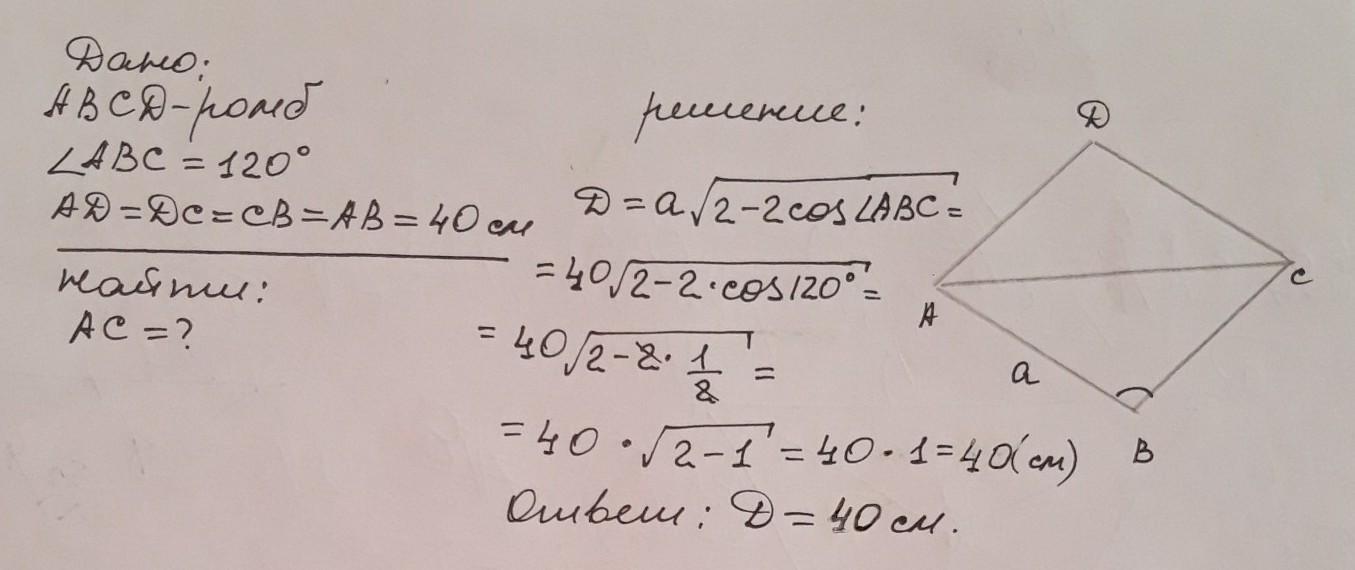 Дано:
ABCD - ромб
∠ABC = 120°
AD = DC = CB = AB = 40 см
Найти:
AC = ?
решение:
D = a√(2-2cos∠ABC) =
= 40√(2-2·cos120°) =
= 40√(2-2·1/2) =
= 40·√(2-1) = 40·1 = 40(см)
Ответ: D = 40 см.
D
A
C
a
B